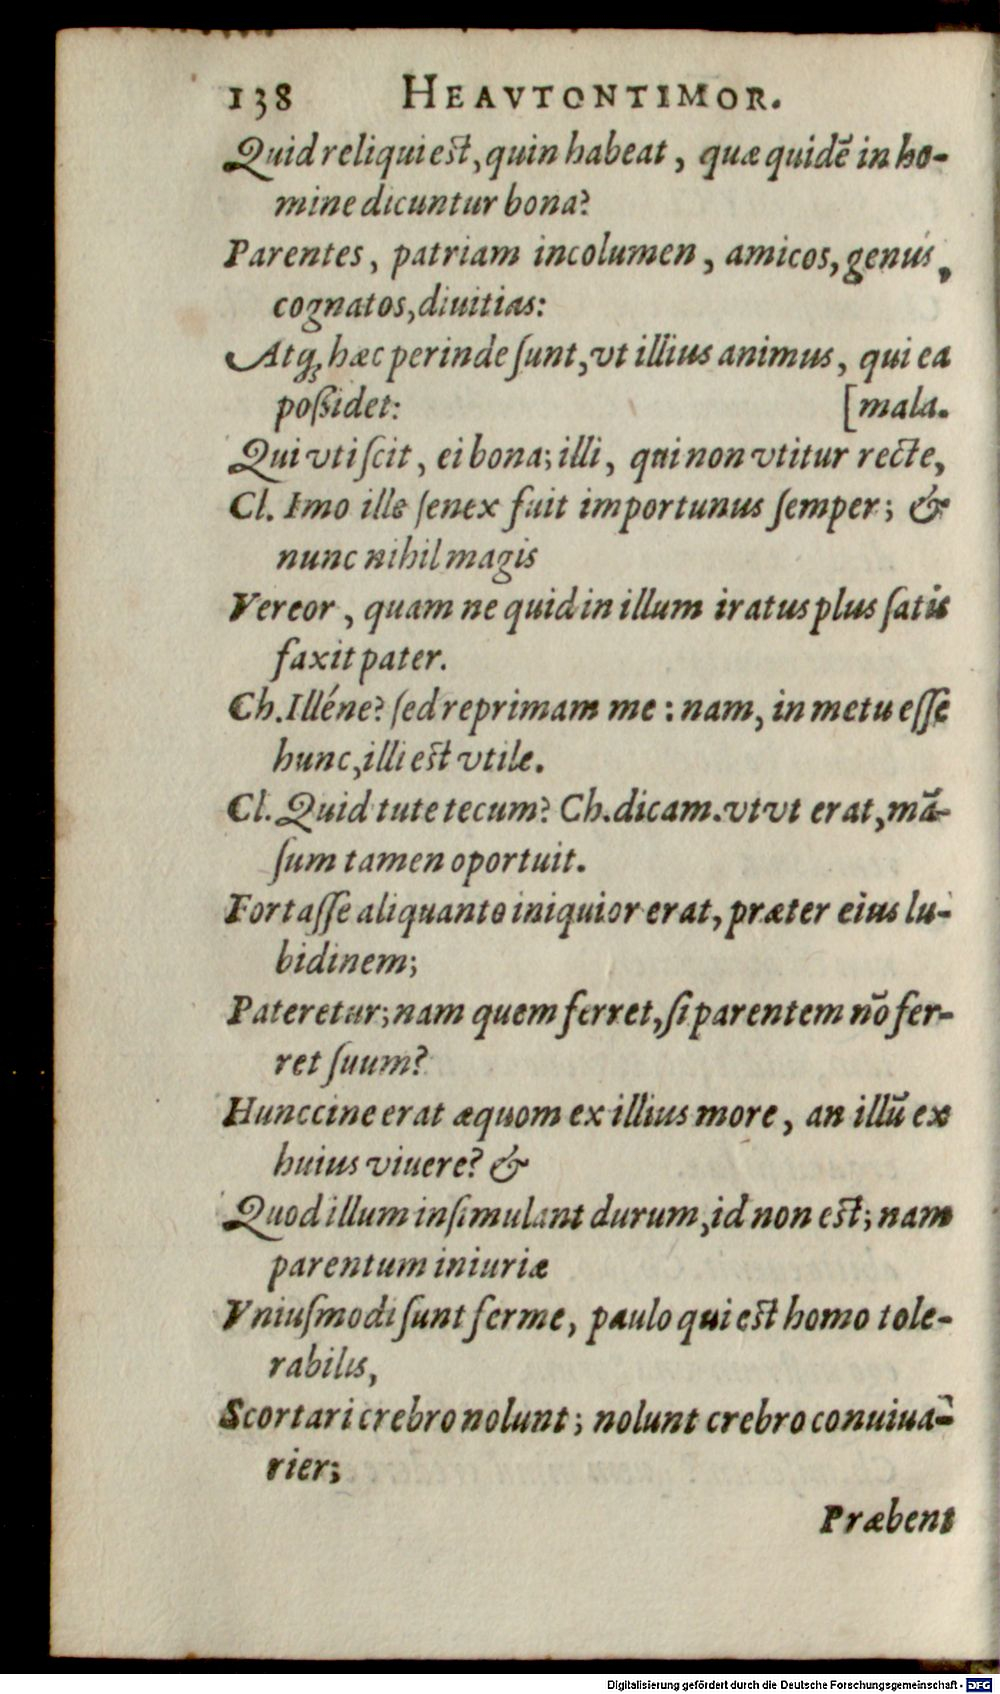 138 HEAVTONTIMOR.
Quid reliqui est, quin habeat, quæ quidē in ho-
mine dicuntur bona?
Parentes, patriam incolumen, amicos, genus,
cognatos, diuitias:
Atq; hæc perinde ſunt, vt illius animus, qui ea
poßidet: [mala.
Qui vti ſcit, ei bona; illi, qui non vtitur recte,
Cl. Imo ille ſenex fuit importunus ſemper; &
nunc nihil magis
Vereor, quam ne quid in illum iratus plus ſatis
faxit pater.
Ch. Illéne? ſed reprimam me: nam, in metu eſſe
hunc, illi est vtile.
Cl. Quid tute tecum? Ch. dicam. vt vt erat, mā-
ſum tamen oportuit.
Fortaſſe aliquanto iniquior erat, præter eius lu-
bidinem;
Pateretur; nam quem ferret, ſi parentem nō fer-
ret ſuum?
Hunccine erat æquom ex illius more, an illū ex
huius viuere? &
Quod illum inſimulant durum, id non est; nam
parentum iniuriæ
Vniuſmodi ſunt ferme, paulo qui est homo tole-
rabilis,
Scortari crebro nolunt; nolunt crebro conuiua-
rier;
Præbent
Digitalisierung gefördert durch die Deutsche Forschungsgemeinschaft - DFG